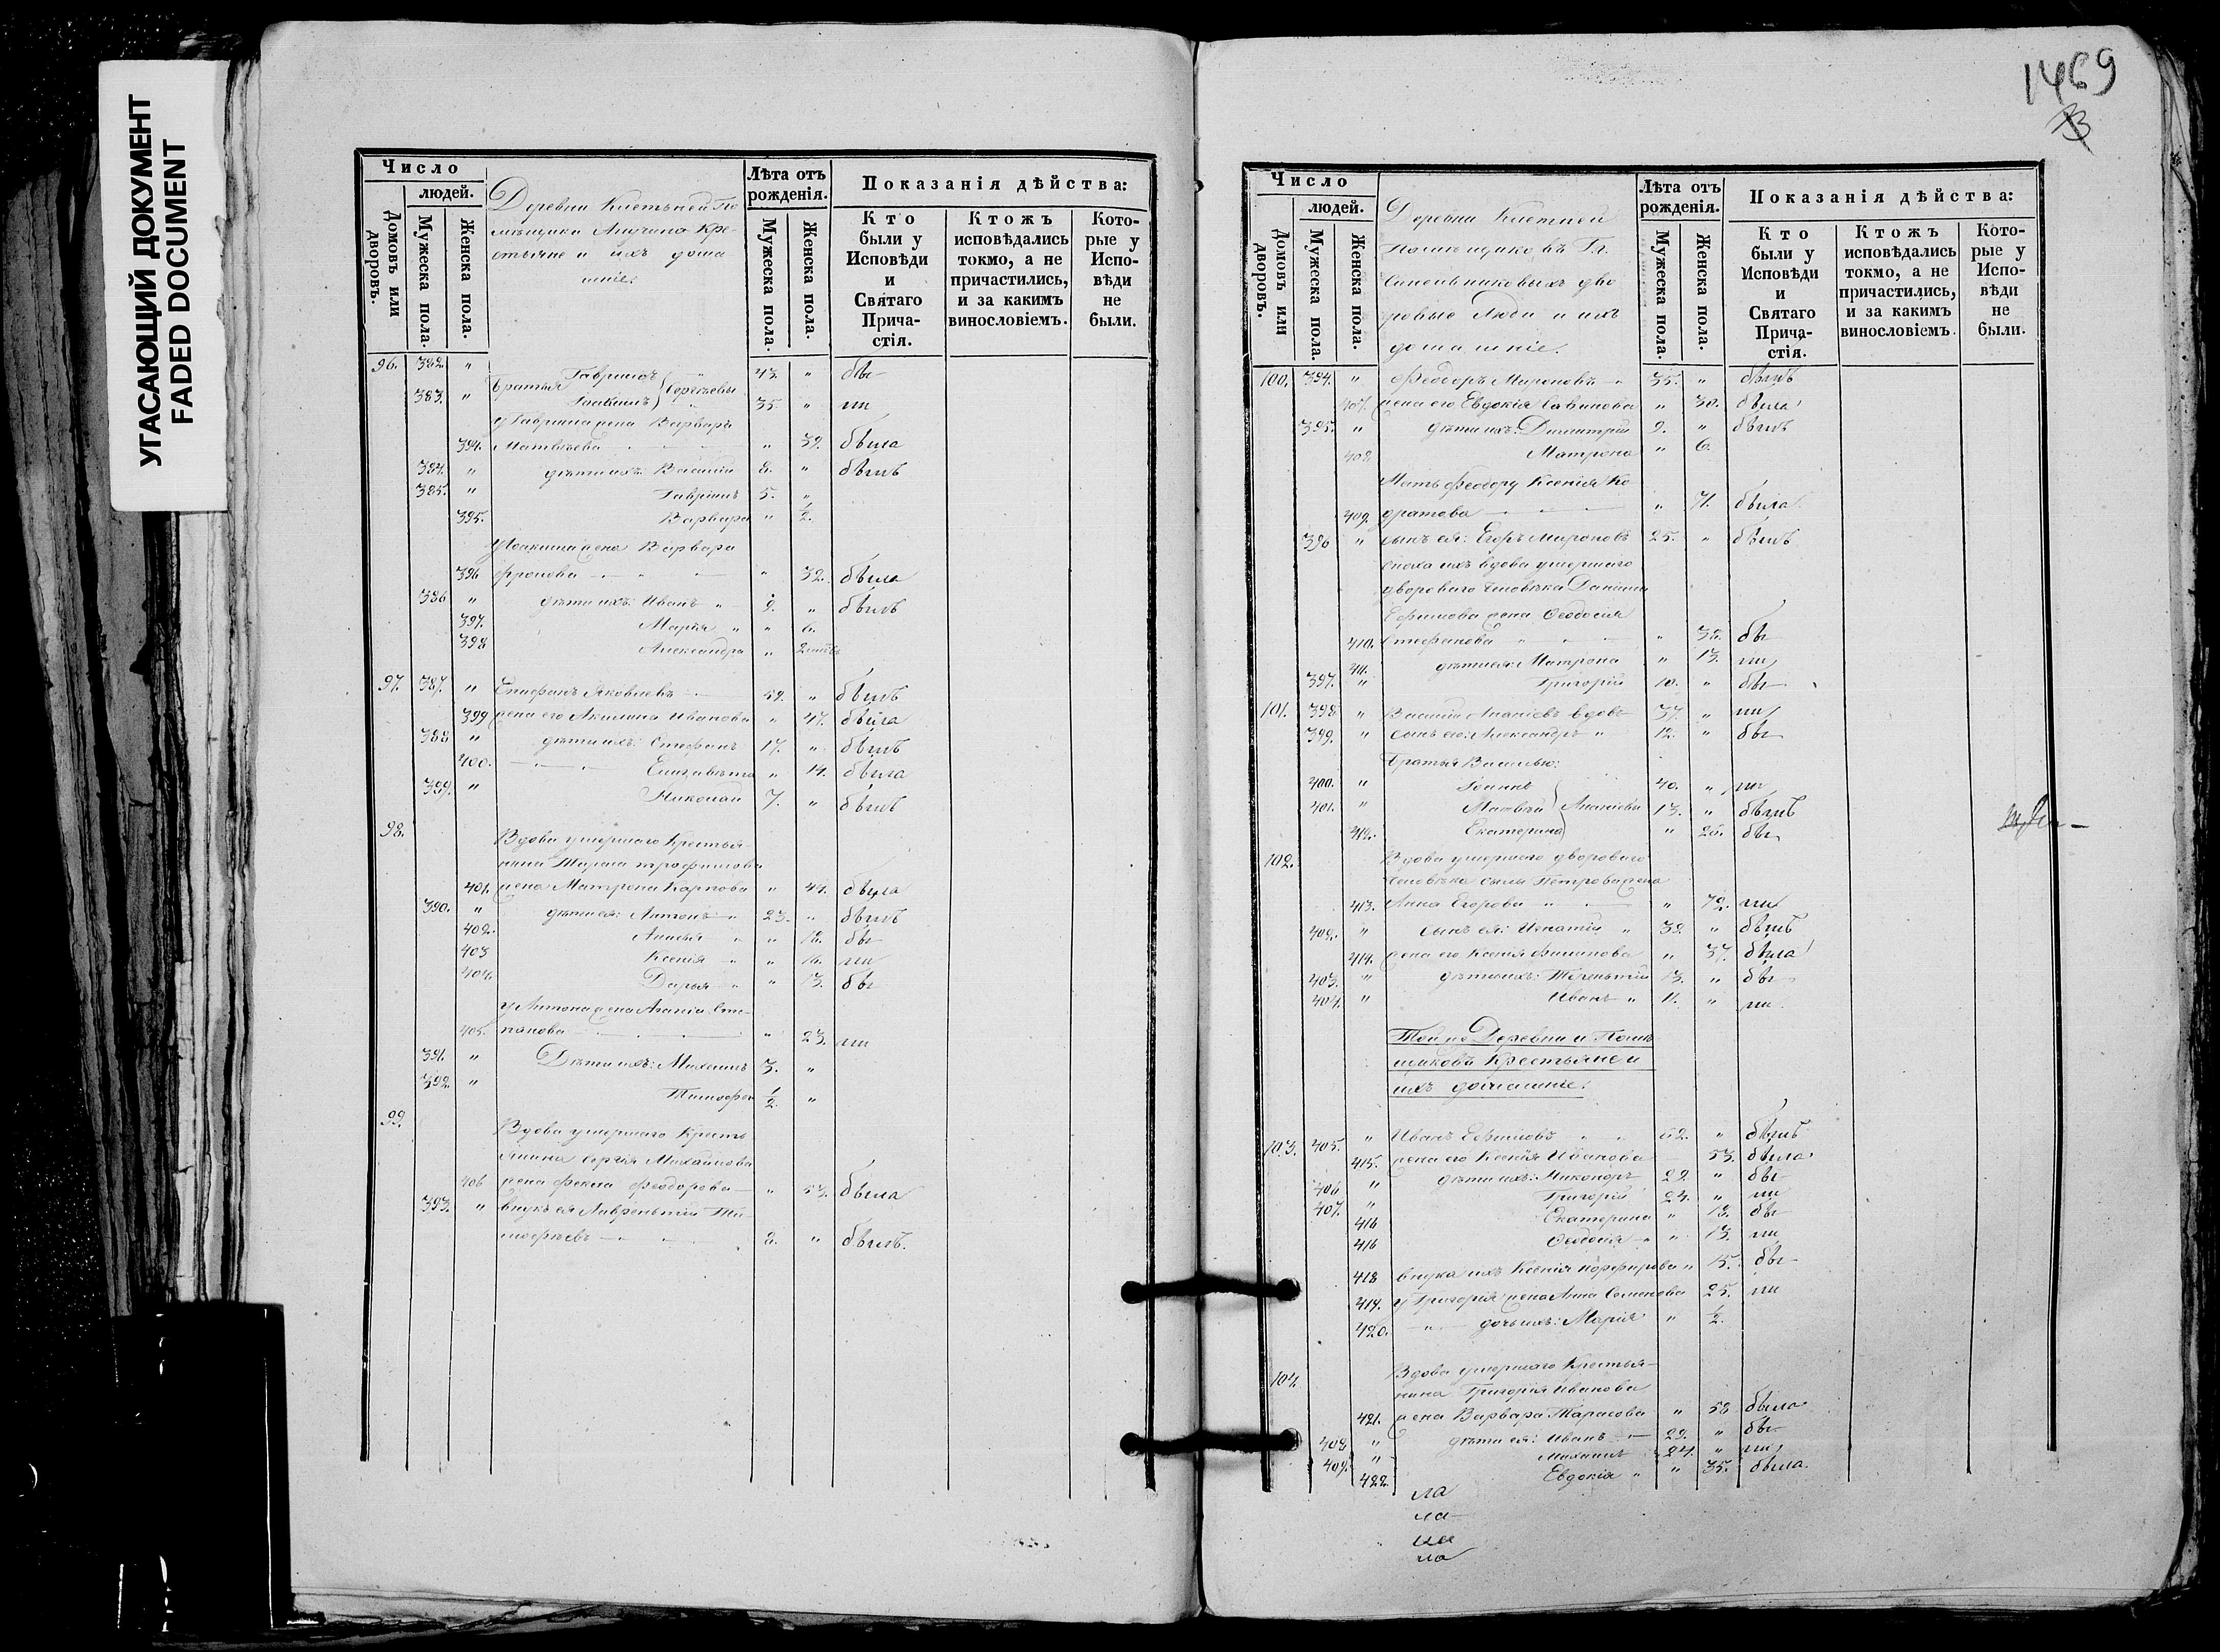 УГАСАЮЩИЙ ДОКУМЕНТ
FADED DOCUMENT
Число
людей.
Домовъ или дворовъ.
Мужеска пола.
Женска пола.
Деревни Клетьней По
мѣщика Кре-
стьяне и ихъ дома
шніе:
Лѣта отъ рожденія.
Мужеска пола.
Женска пола.
Показанія дѣйства:
Кто были у Исповѣди и Святаго Прича-стія.
Ктожъ исповѣдались токмо, а не причастились, и за какимъ винословіемъ.
Кото-рые у Испо-вѣди не были.
96. 382. " Гавріилъ 43. " бы
383. " Братья Іоакимъ Сергѣевы 35. " ли
у Гавріила жена Варвара
394. Матвѣева " 39. была
384. " дѣти ихъ: Василій 8. " былъ
385. " Гавріилъ 5. "
395. Варвара " ½.
у Іоакима жена Варвара
396 Фролова " 32. была
386 " дѣти ихъ: Иванъ " 9. " былъ
397. Марія " " 6.
398 Александра "
97. 387. " Епифанъ Яковлевъ 59. " былъ
399 жена его Акилина Иванова " 47. была
388 " дѣти ихъ: Стефанъ 17. " былъ
400. Елизавета " 14. была
389. " Николай 7. " былъ
98. Вдова умершаго Крестья-
нина Тараса Трофимова
401. жена Матрона Карпова " 44. была
390. " дѣти ея: Антонъ 23. " былъ
402. Анисья " " 18. бы
403 Ксенія " " 16. ли
404. Дарья " " 13. бы
у Антона жена Агапія Сте-
405. панова " 23. ли
391. " Дѣти ихъ: Михаилъ 3. "
392. " Тимофей ½ "
99. Вдова умершаго Кресть
янина Сергія Михайлова
406 жена Фекла Феодорова " 53. была
393. " внукъ ея Лаврентій Ти-
мофѣевъ 8. " былъ.
1469
Число
людей.
Домовъ или дворовъ.
Мужеска пола.
Женска пола.
Деревни Клетней
Помѣщиковъ Гг.
Синельниковыхъ дво
ровые Люди и ихъ
домашніе.
Лѣта отъ рожденія.
Мужеска пола.
Женска пола.
Показанія дѣйства:
Кто были у Исповѣди и Святаго Прича-стія.
Ктожъ исповѣдались токмо, а не причастились, и за какимъ винословіемъ.
Кото-рые у Испо-вѣди не были.
100. 394. " Феодоръ Мироновъ " 35. " былъ
407. жена его Евдокія Савинова " 30. была
395. " дѣти ихъ: Димитрій 9. " былъ
408 Матрона " 6.
Мать Феодору Ксенія Ко
409. дратова " 71. была
396 " сынъ ея: Егоръ Мироновъ 25. " былъ
сноха ихъ вдова умершаго
двороваго человѣка Даніила
Ефимова жена Феодосія
410. Стефанова " 38. бы
411. дѣти ея: Матрона " 13. ли
397. " Григорій 10. " бы
101. 398 " Василій Ананіевъ вдовъ 37. " ли
399. " сынъ его: Александръ " 12. " бы
братья Василью:
400. " Іоаннъ 40. " ли
401. " Матвѣй Ананіевы 13. " былъ
412. Екатерина " 26. бы
102. Вдова умершаго двороваго
человѣка Силы Петрова жена
413. Анна Егорова " 72. ли
402. " сынъ ея: Игнатій " 39. " былъ
414. жена его Ксенія Филипова " 37. была
403. " дѣти ихъ: Терентій 13. " бы
404. " Иванъ " 11. " ли
Той же Деревни и Помѣ
щиковъ Крестьяне и
ихъ домашніе:
103. 405. " Иванъ Ефимовъ " 62. " былъ
415. жена его Ксенія Иванова 53. была
406 " дѣти ихъ: Никаноръ 29. " бы
407. " Григорій 24. " ли
416 Екатерина " 18. бы
416 Феодосія " " 13. ли
418 внука ихъ Ксенія Порфирова " 15. бы
419. у Григорія жена Анна Семенова 25. ли
420. дочь ихъ: Марія " ½.
104. Вдова умершаго Крестья-
нина Григорія Иванова
421. жена Варвара Тарасова " 58 была
408 " дѣти ея: Иванъ 29. " бы
409. " Михаилъ 24. " ли
422. Евдокія " " 35. была.
ла
ла
ли
ла